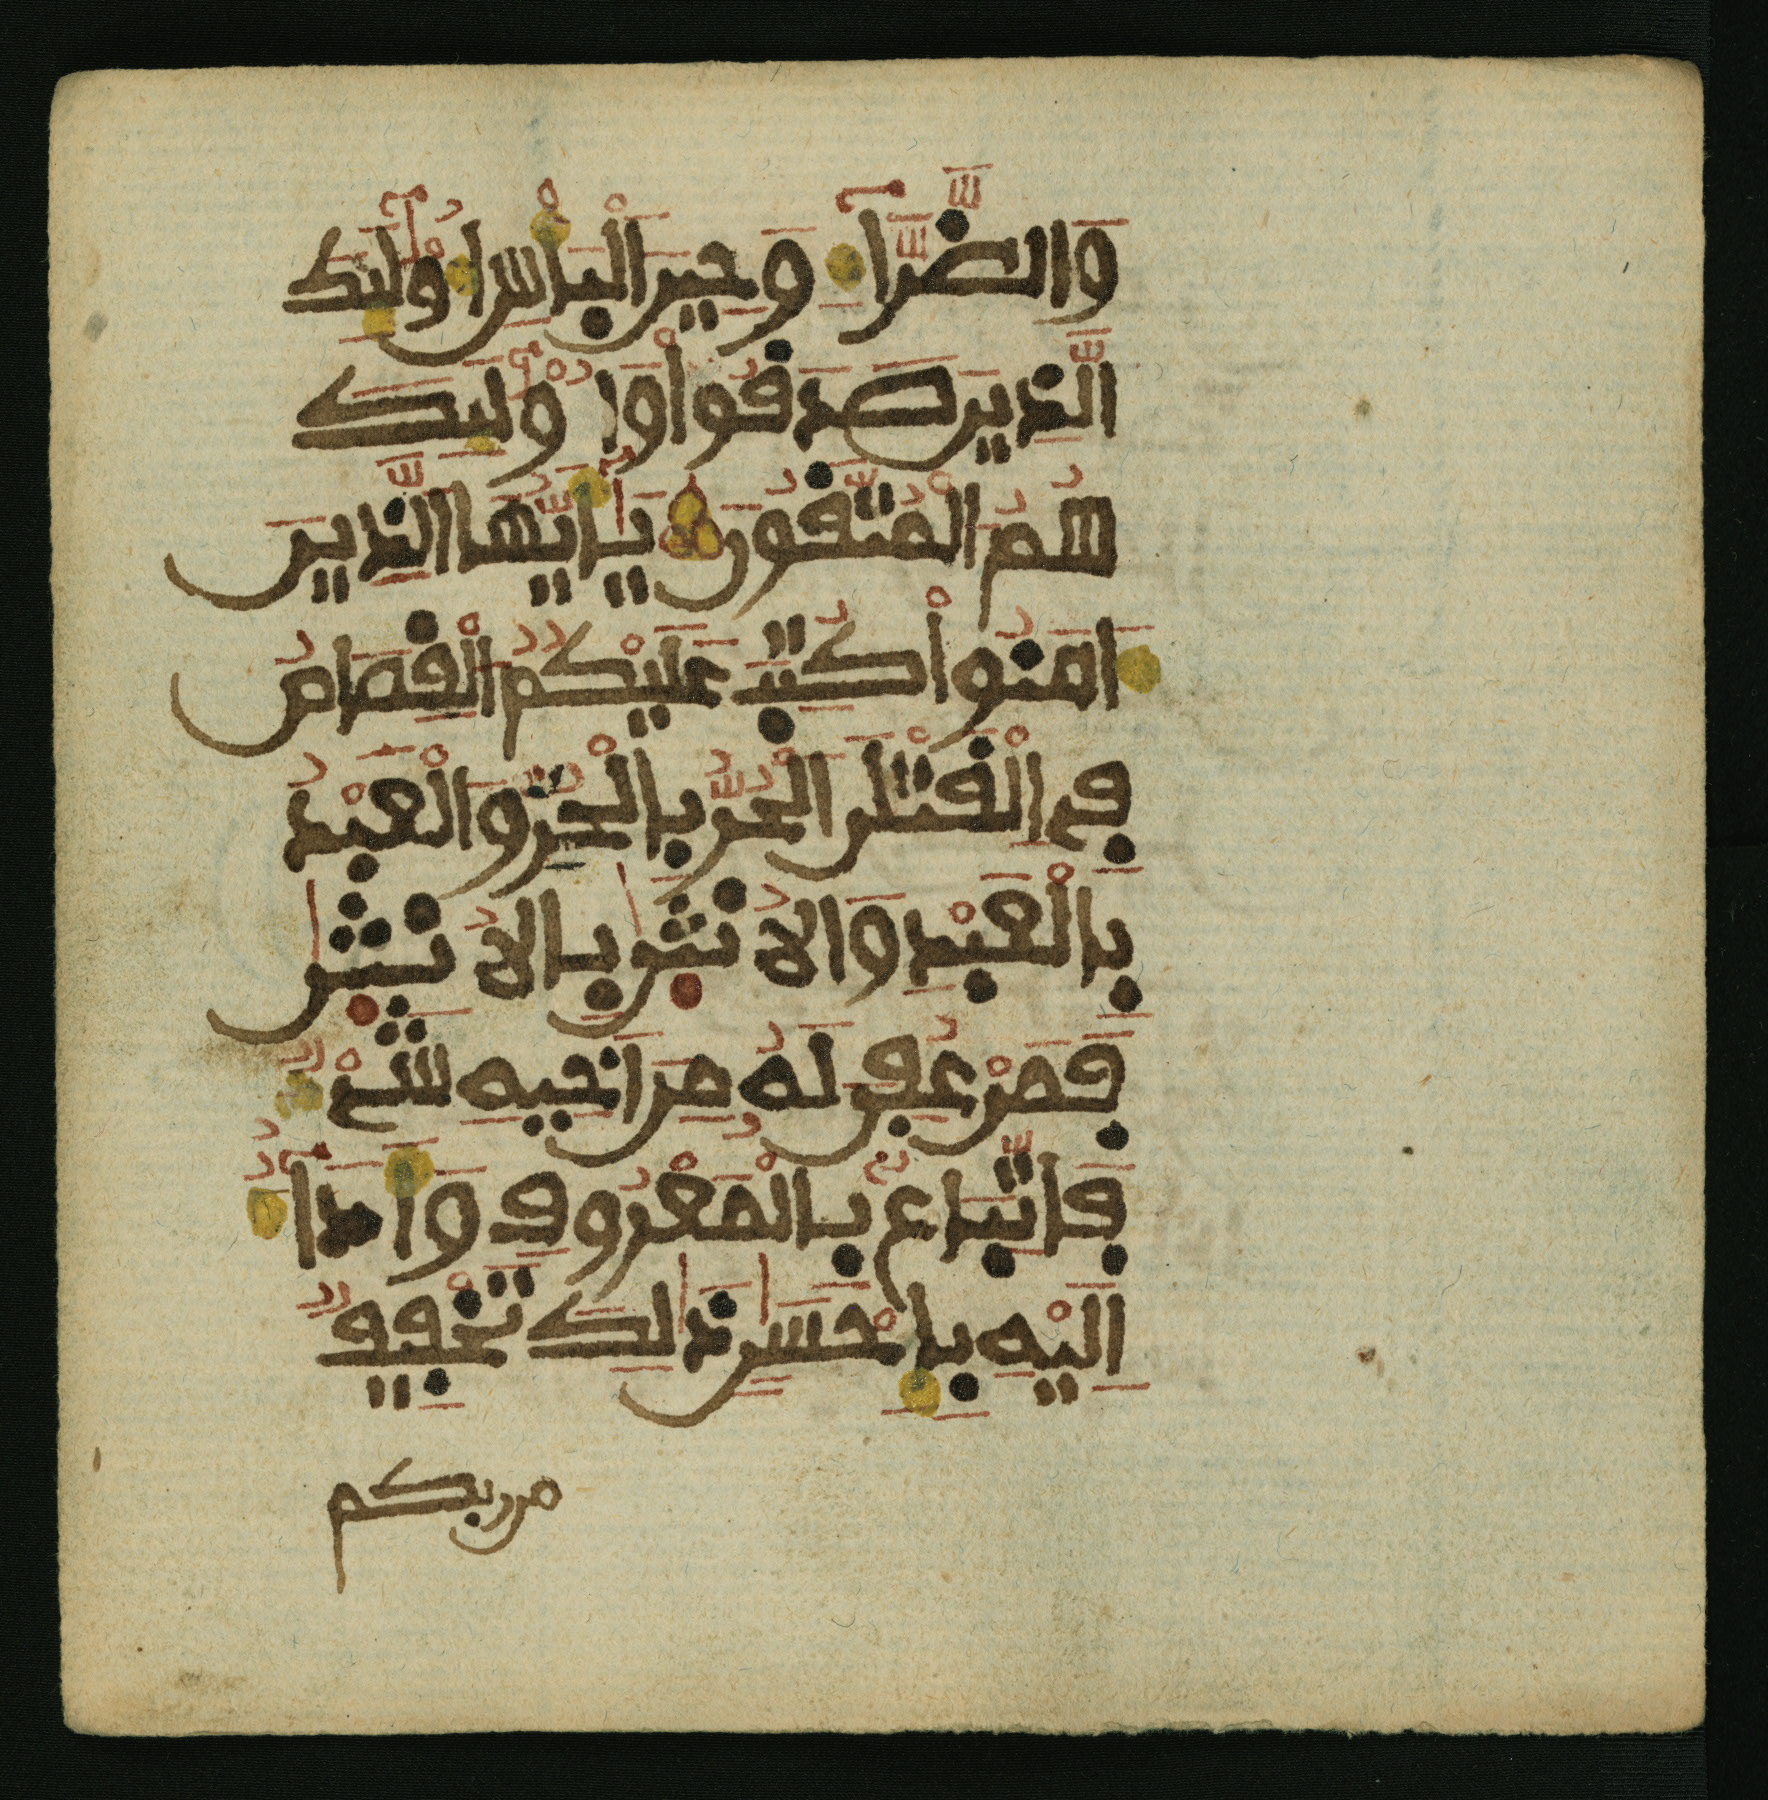 وَالضَّرَّآءِ وَحِينَ الْبَأْسِ أُوْلَٰٓئِكَ
الَّذِينَ صَدَقُواْ وَأُوْلَٰٓئِكَ
هُمُ الْمُتَّقُونَ يَٰٓأَيُّهَا الَّذِينَ
ءَامَنُواْ كُتِبَ عَلَيْكُمُ الْقِصَاصُ
فِي الْقَتْلَى الْحُرُّ بِالْحُرِّ وَالْعَبْدُ
بِالْعَبْدِ وَالْأُنثَىٰ بِالْأُنثَىٰ
فَمَنْ عُفِيَ لَهُ مِنَ اَخِيهِ شَيْءٌ
فَاتِّبَاعٌ بِالْمَعْرُوفِ وَأَدَآءٌ
إِلَيْهِ بِإِحْسَٰنٍ ذَٰلِكَ تَخْفِيفٌ
من ربكم